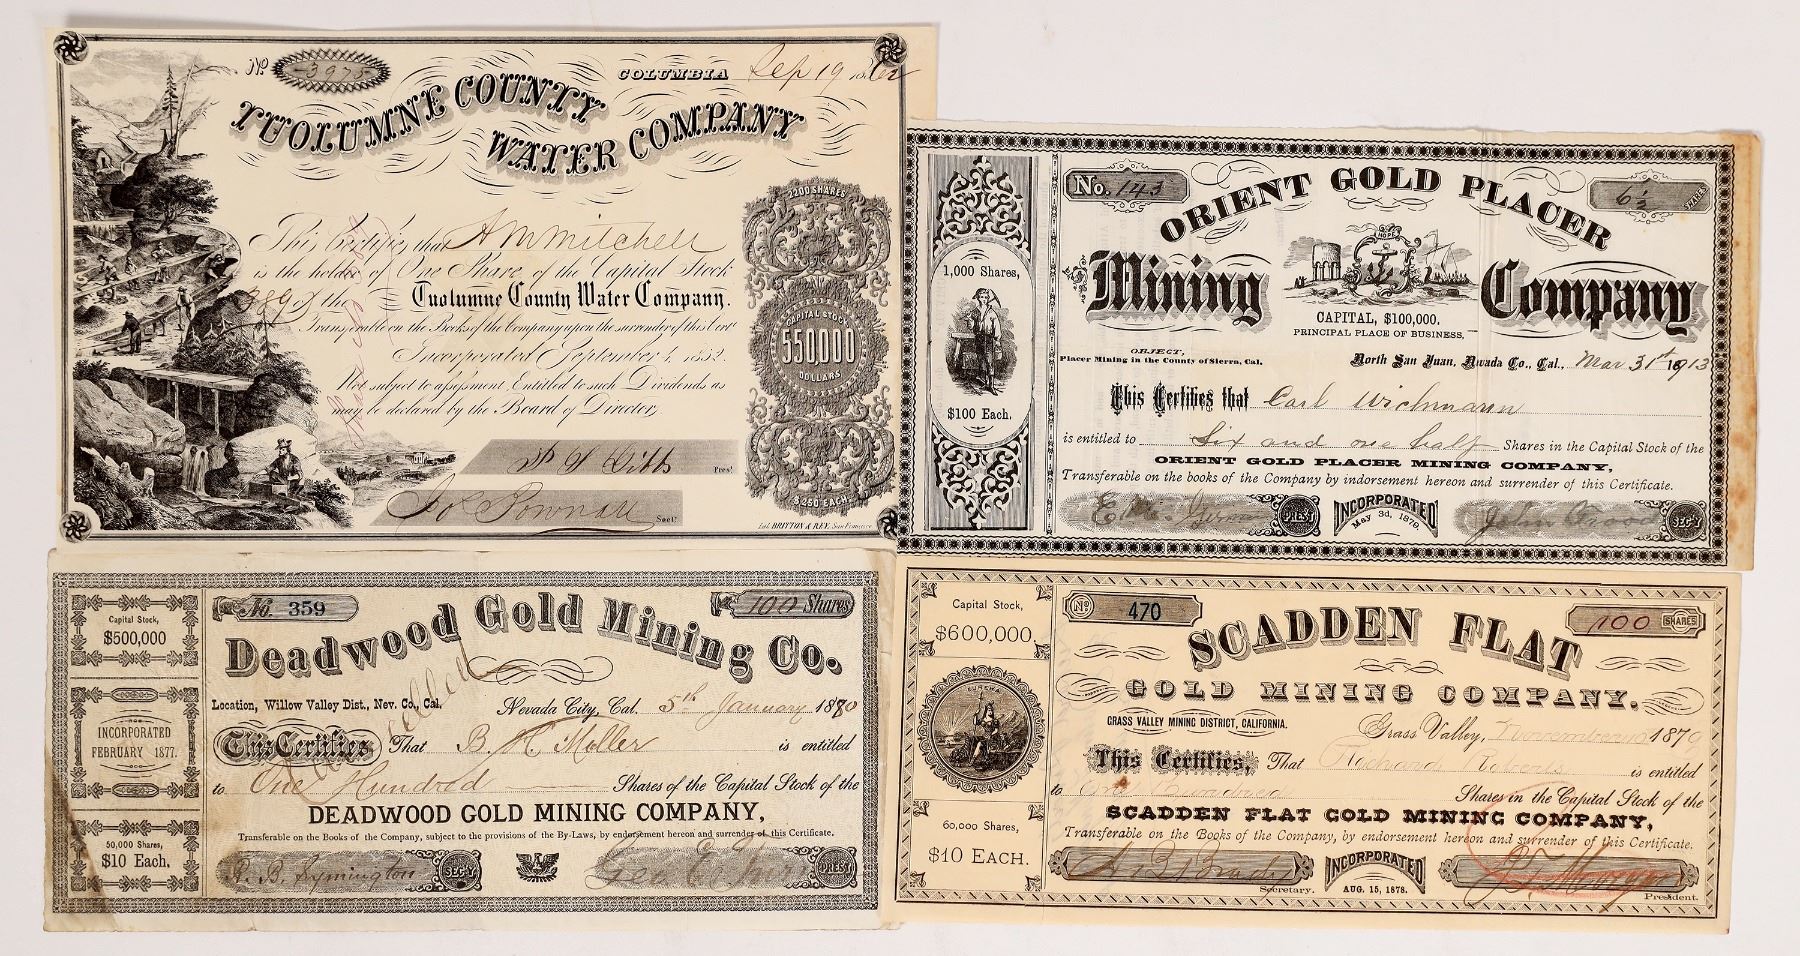 No 3975 COLUMBIA Sep 19 1862
TUOLUMNE COUNTY
WATER COMPANY
2200 SHARES
This Certifies that A M Mitchell
is the holder of One Share of the Capital Stock
of the Tuolumne County Water Company.
Transferable on the Books of the Company upon the surrender of this Certe
Incorporated September 1, 1852.
Not subject to assessment Entitled to such Dividends as
may be declared by the Board of Directors
CAPITAL STOCK
550,000
DOLLARS
$250 EACH
Prest
Secty
Lith. BRITTON & REY, San Francisco
No. 143
6 1/2 SHARES
ORIENT GOLD PLACER
Mining Company
HOPE
1,000 Shares,
$100 Each.
CAPITAL, $100,000.
PRINCIPAL PLACE OF BUSINESS,
OBJECT,
Placer Mining in the County of Sierra, Cal.
North San Juan, Nevada Co., Cal., Mar 31st 1913
This Certifies that Carl Wichmann
is entitled to Six and one half Shares in the Capital Stock of the
ORIENT GOLD PLACER MINING COMPANY,
Transferable on the books of the Company by indorsement hereon and surrender of this Certificate.
PREST
INCORPORATED
May 3d, 1878.
SEC'Y
Capital Stock,
$500,000
INCORPORATED
FEBRUARY 1877.
50,000 Shares,
$10 Each.
No. 359
100 Shares
Deadwood Gold Mining Co.
Location, Willow Valley Dist., Nev. Co., Cal.
Nevada City, Cal. 5th January 1880
This Certifies That B. H. Moller is entitled
to One Hundred Shares of the Capital Stock of the
DEADWOOD GOLD MINING COMPANY,
Transferable on the Books of the Company, subject to the provisions of the By-Laws, by endorsement hereon and surrender of this Certificate.
Cancelled
R. B. Symington SEC'Y
PREST
Capital Stock,
$600,000.
EUREKA
60,000 Shares,
$10 EACH.
No 470
100 SHARES
SCADDEN FLAT
GOLD MINING COMPANY.
GRASS VALLEY MINING DISTRICT, CALIFORNIA.
Grass Valley, November 10 1879
This Certifies, That Richard Roberts is entitled
to One Hundred Shares in the Capital Stock of the
SCADDEN FLAT GOLD MINING COMPANY,
Transferable on the Books of the Company, by indorsement hereon and surrender of this Certificate.
Secretary.
INCORPORATED
AUG. 15, 1878.
President.